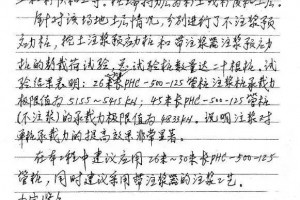 针对该场地土层情况，分别进行了不注浆预应
力桩，桩土注浆预应力桩和带注浆器注浆预应力
桩的静载荷试验，总试验桩数量达二十根桩。试
验结果表明：26米长PHC-500-125管桩注浆桩承载力
极限值为5155~5445kN；45米长PHC-500-125管桩
(不注浆)的承载力极限值为4833kN。说明注浆对
单桩承载力的提高效果非常显著。
在本工程中建议应用26米~30米长PHC-500-125
管桩，同时建议采用带注浆器的注浆工艺。